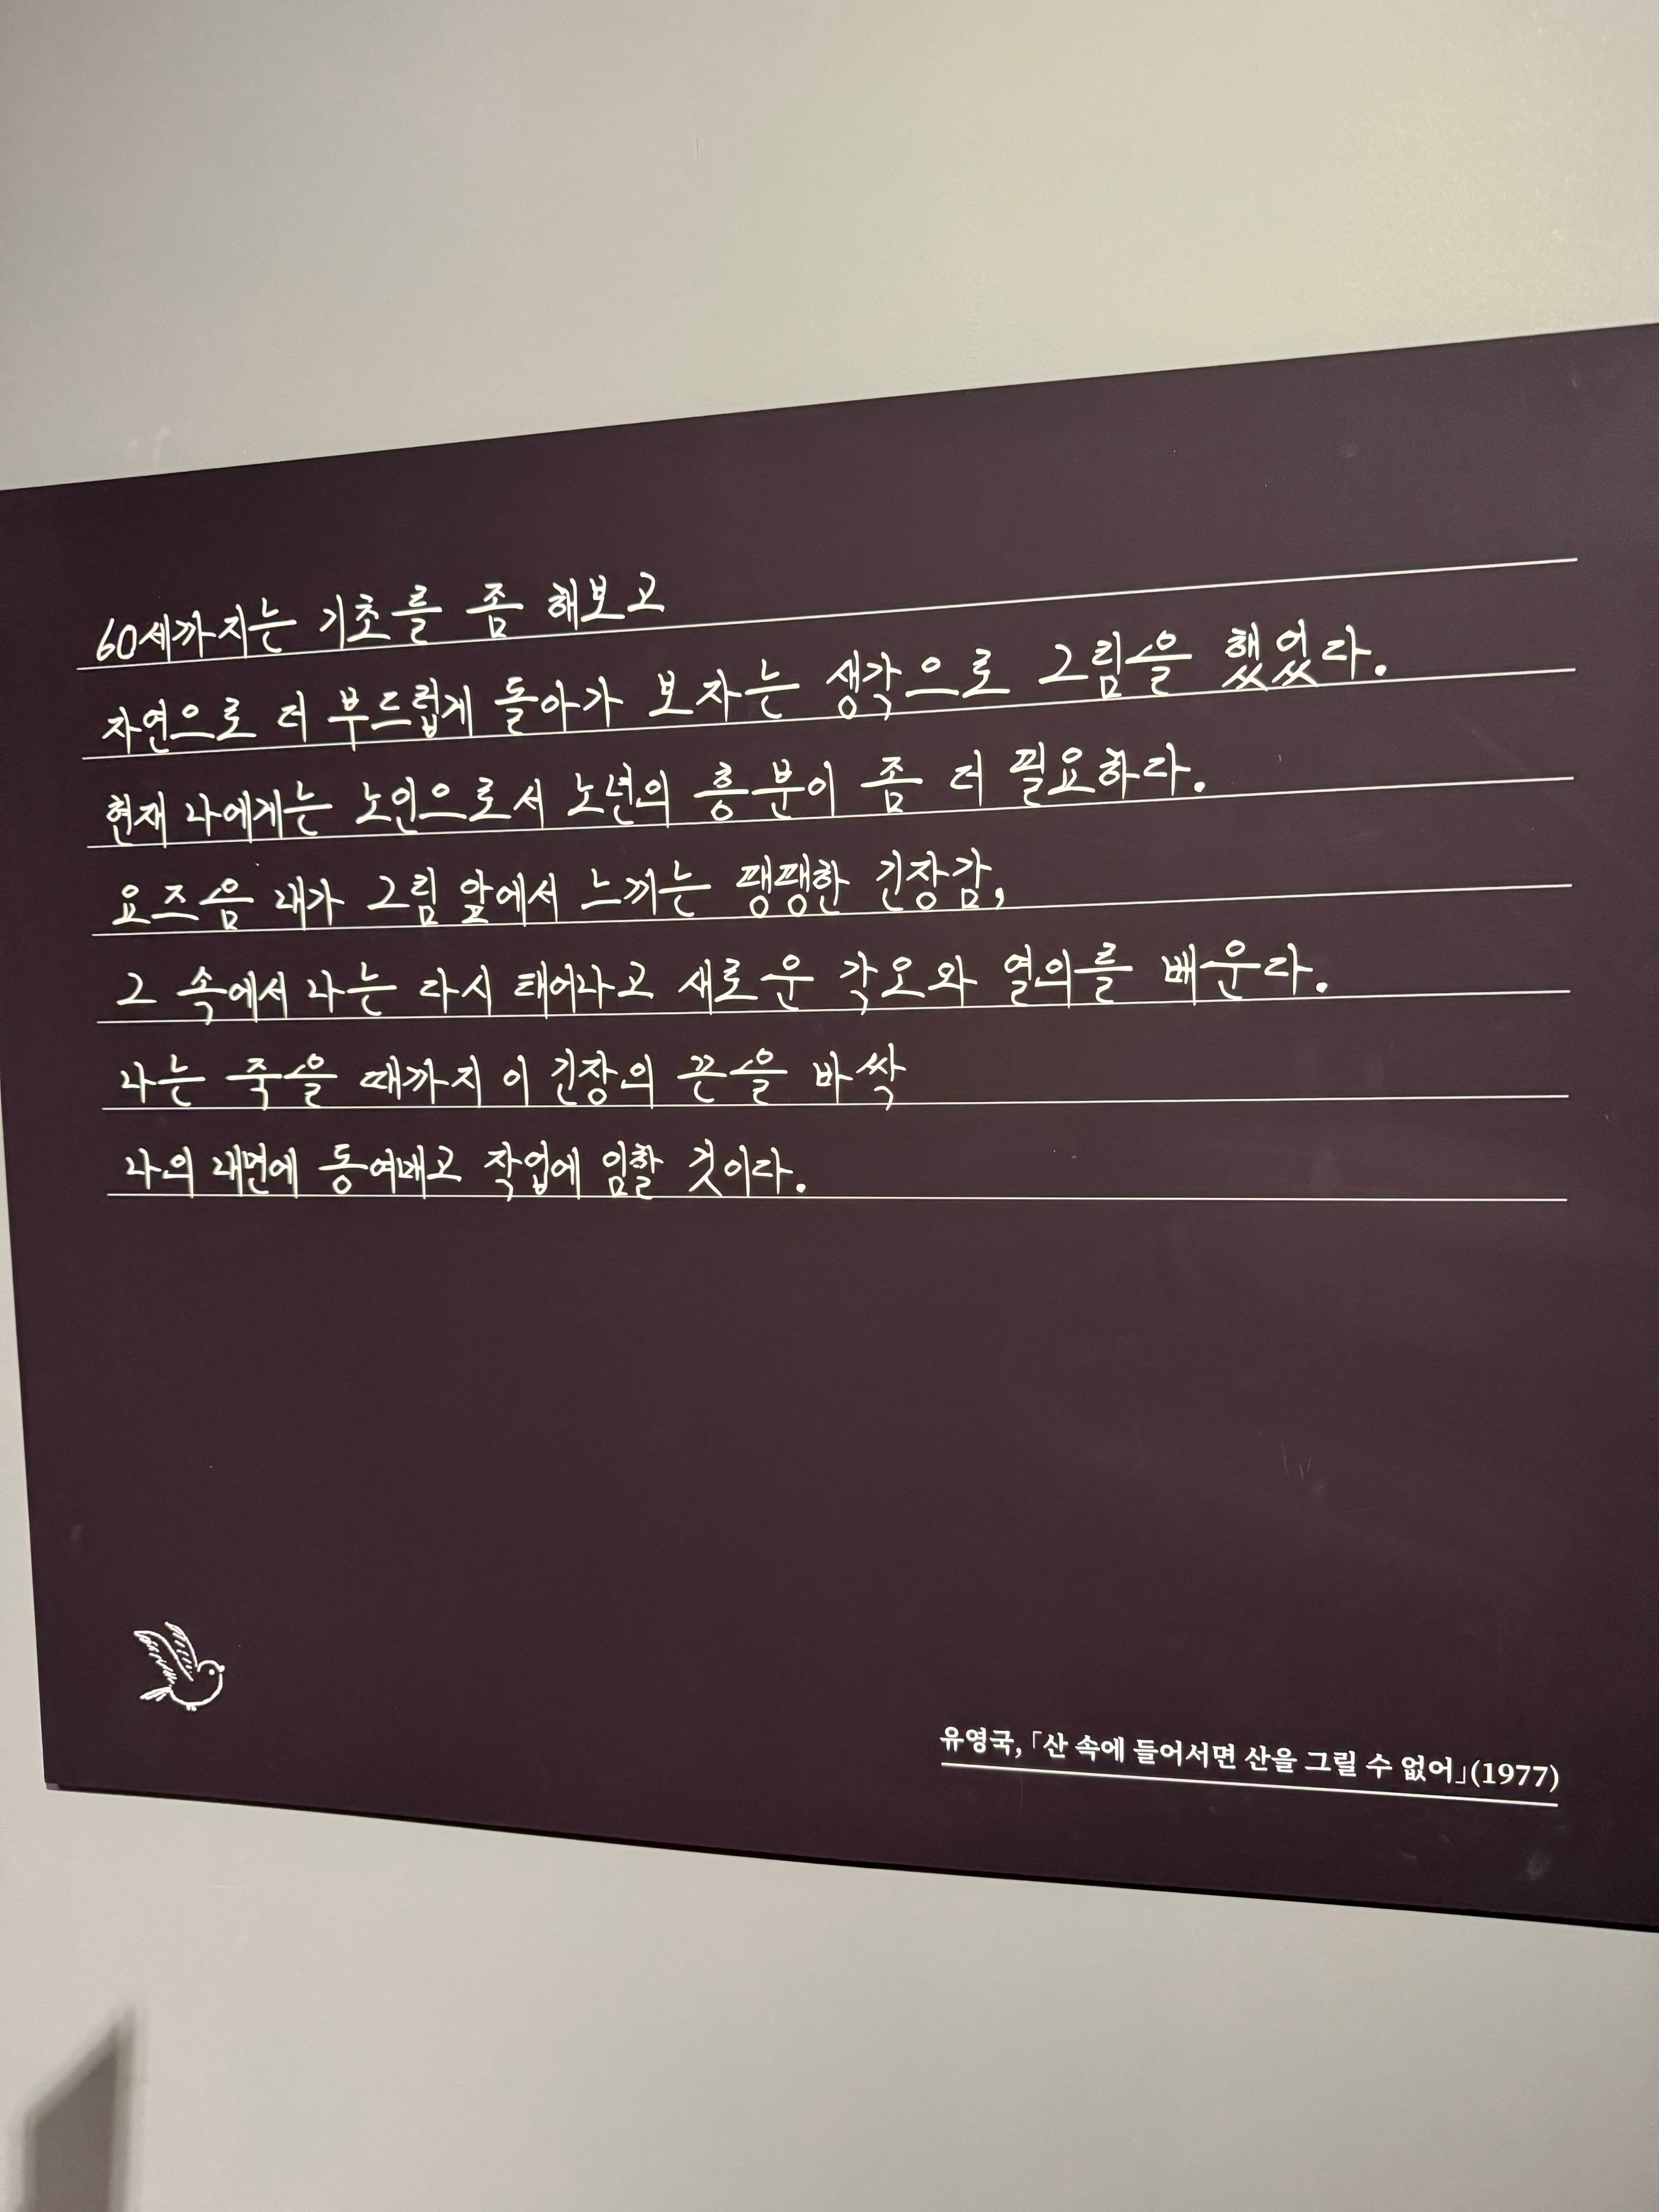 60세까지는 기초를 좀 해보고
자연으로 더 부드럽게 돌아가 보자는 생각으로 그림을 했었다.
현재 나에게는 노인으로서 노년의 흥분이 좀 더 필요하다.
요즈음 내가 그림 앞에서 느끼는 팽팽한 긴장감,
그 속에서 나는 다시 태어나고 새로운 각오와 열의를 배운다.
나는 죽을 때까지 이 긴장의 끈을 바싹
나의 내면에 동여매고 작업에 임할 것이다.
유영국, 「산 속에 들어서면 산을 그릴 수 없어」(1977)